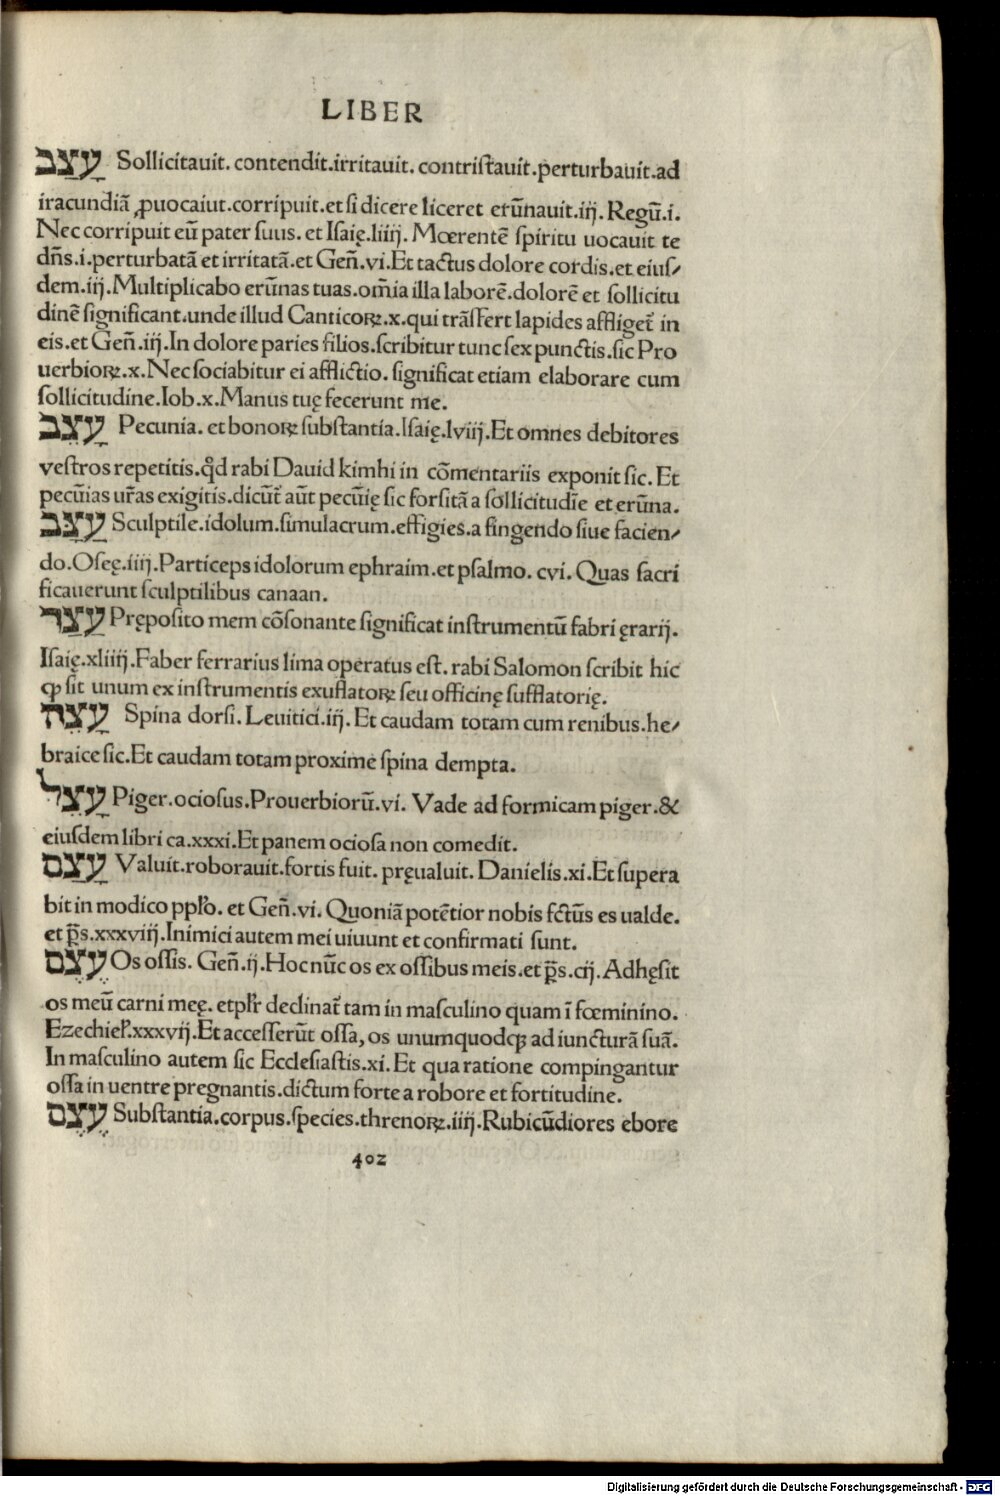 LIBER
עָצַב Sollicitauit. contendit.irritauit. contristauit.perturbauit.ad
iracundiã ꝓuocaiut.corripuit.et si dicere liceret erũnauit.iij. Regũ.i.
Nec corripuit eũ pater suus. et Isaię.liiij. Mœrentẽ spiritu uocauit te
dñs.i.perturbatã et irritatã.et Geñ.vi.Et tactus dolore cordis.et eius/
dem.iij.Multiplicabo erũnas tuas.om̃ia illa laborẽ.dolorẽ et sollicitu
dinẽ significant.unde illud Canticoꝝ.x.qui trãsfert lapides affliget̃ in
eis.et Geñ.iij.In dolore paries filios.scribitur tunc sex punctis.sic Pro
uerbioꝝ.x.Nec sociabitur ei afflictio. significat etiam elaborare cum
sollicitudine.Iob.x.Manus tuę fecerunt me.
עָצֵב Pecunia. et bonoꝝ substantia.Isaię.lviij.Et omnes debitores
vestros repetitis.qd̃ rabi Dauid kimhi in cõmentariis exponit sic. Et
pecũias ur̃as exigitis.dicũt̃ aũt pecũię sic forsitã a sollicitudĩe et erũna.
עָצָּב Sculptile.idolum.simulacrum.effigies.a fingendo siue facien/
do.Oseę.iiij.Particeps idolorum ephraim.et psalmo. cvi. Quas sacri
ficauerunt sculptilibus canaan.
עָצַד Pręposito mem cõsonante significat instrumentũ fabri ęrarij.
Isaię.xliiij.Faber ferrarius lima operatus est. rabi Salomon scribit hic
ꝙ sit unum ex instrumentis exuflatoꝝ seu officinę sufflatorię.
עָצֶה Spina dorsi. Leuitici.iij. Et caudam totam cum renibus.he/
braice sic.Et caudam totam proxime spina dempta.
עָצֵל Piger.ociosus.Prouerbiorũ.vi. Vade ad formicam piger.&
eiusdem libri ca.xxxi.Et panem ociosa non comedit.
עָצַם Valuit.roborauit.fortis fuit. pręualuit. Danielis.xi.Et supera
bit in modico ppl̃o. et Geñ.vi. Quoniã potẽtior nobis fctũs es ualde.
et p̃s.xxxviij.Inimici autem mei uiuunt et confirmati sunt.
עֶצֶם Os ossis. Geñ.ij.Hoc nũc os ex ossibus meis.et p̃s.cij. Adhęsit
os meũ carni meę. etpl̃r declinat̃ tam in masculino quam ĩ fœminino.
Ezechiel̃.xxxvij.Et accesserũt ossa, os unumquodqꝫ ad iuncturã suã.
In masculino autem sic Ecclesiastis.xi. Et qua ratione compingantur
ossa in uentre pregnantis.dictum forte a robore et fortitudine.
עֶצֶם Substantia.corpus.species.threnoꝝ.iiij.Rubicũdiores ebore
402
Digitalisierung gefördert durch die Deutsche Forschungsgemeinschaft - DFG